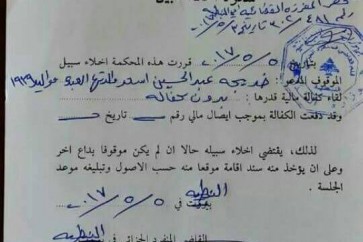 بتاريخ ٥/٥/٢٠١٧ قررت هذه المحكمة اخلاء سبيل
الموقوف المدعو: خديجة عبد الحسين اسعد والدتها مواليد ١٩٣٩
لقاء كفالة مالية قدرها: بدون كفالة
وقد دفعت الكفالة بموجب ايصال مالي رقم تاريخ
لذلك، يقتضي اخلاء سبيله حالا ان لم يكن موقوفا بداع اخر
وعلى ان يؤخذ منه سند اقامة موقعا منه حسب الاصول وتبليغه موعد
الجلسة .
النبطية
بيروت في ٥/٥/٢٠١٧
القاضي المنفرد الجزائي في النبطية